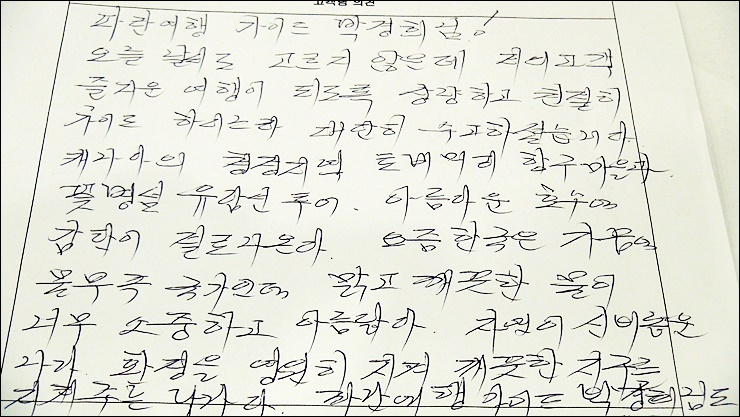 고객님 의견
파란여행 가이드 박경희님!
오늘 날씨도 고르지 않은데 저의고객
즐거운 여행이 되도록 상냥하고 친절히
가이드 하시느라 대단히 수고하셨습니다.
캐나다의 청정지역 토버머리 항구마을과
꽃병섬 유람선 투어. 아름다운 호수에
감탄이 절로나온다. 요즘한국은 가뭄에
물부족 국가인데 맑고 깨끗한 물이
너무 소중하고 아름답다. 자연이 신비로운
나라 환경을 영원히 지켜 깨끗한 지구를
지켜주는 나라다. 파란여행 가이드 박경희님도